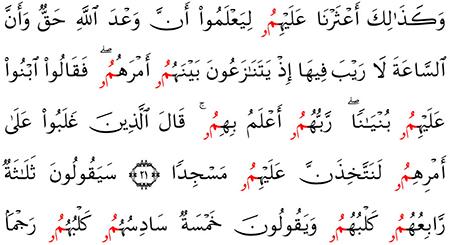 وَكَذَٰلِكَ أَعْثَرْنَا عَلَيْهِمُۥ لِيَعْلَمُوٓا۟ أَنَّ وَعْدَ ٱللَّهِ حَقٌّ وَأَنَّ
ٱلسَّاعَةَ لَا رَيْبَ فِيهَا إِذْ يَتَنَٰزَعُونَ بَيْنَهُمُۥ أَمْرَهُمُۥ ۖ فَقَالُوا۟ ٱبْنُوا۟
عَلَيْهِمُۥ بُنْيَٰنًا ۖ رَّبُّهُمُۥ أَعْلَمُ بِهِمُۥ ۚ قَالَ ٱلَّذِينَ غَلَبُوا۟ عَلَىٰٓ
أَمْرِهِمُۥ لَنَتَّخِذَنَّ عَلَيْهِمُۥ مَسْجِدًا ﴿٢١﴾ سَيَقُولُونَ ثَلَٰثَةٌ
رَّابِعُهُمُۥ كَلْبُهُمُۥ وَيَقُولُونَ خَمْسَةٌ سَادِسُهُمُۥ كَلْبُهُمُۥ رَجْمًۢا